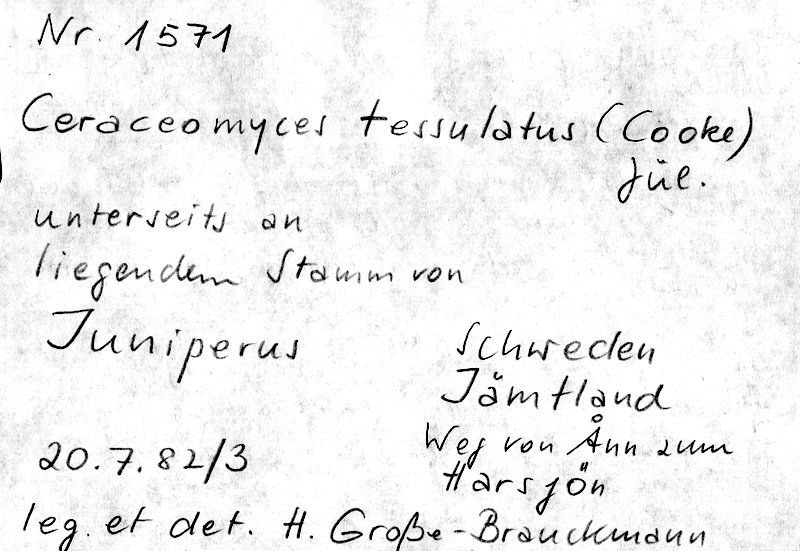 Nr. 1571
Ceraceomyces tessulatus (Cooke)
Jül.
unterseits an
liegendem Stamm von
Juniperus
Schweden
Jämtland
Weg von Ånn zum
Harsjön
20.7.82/3
leg. et det. H. Große-Brauckmann